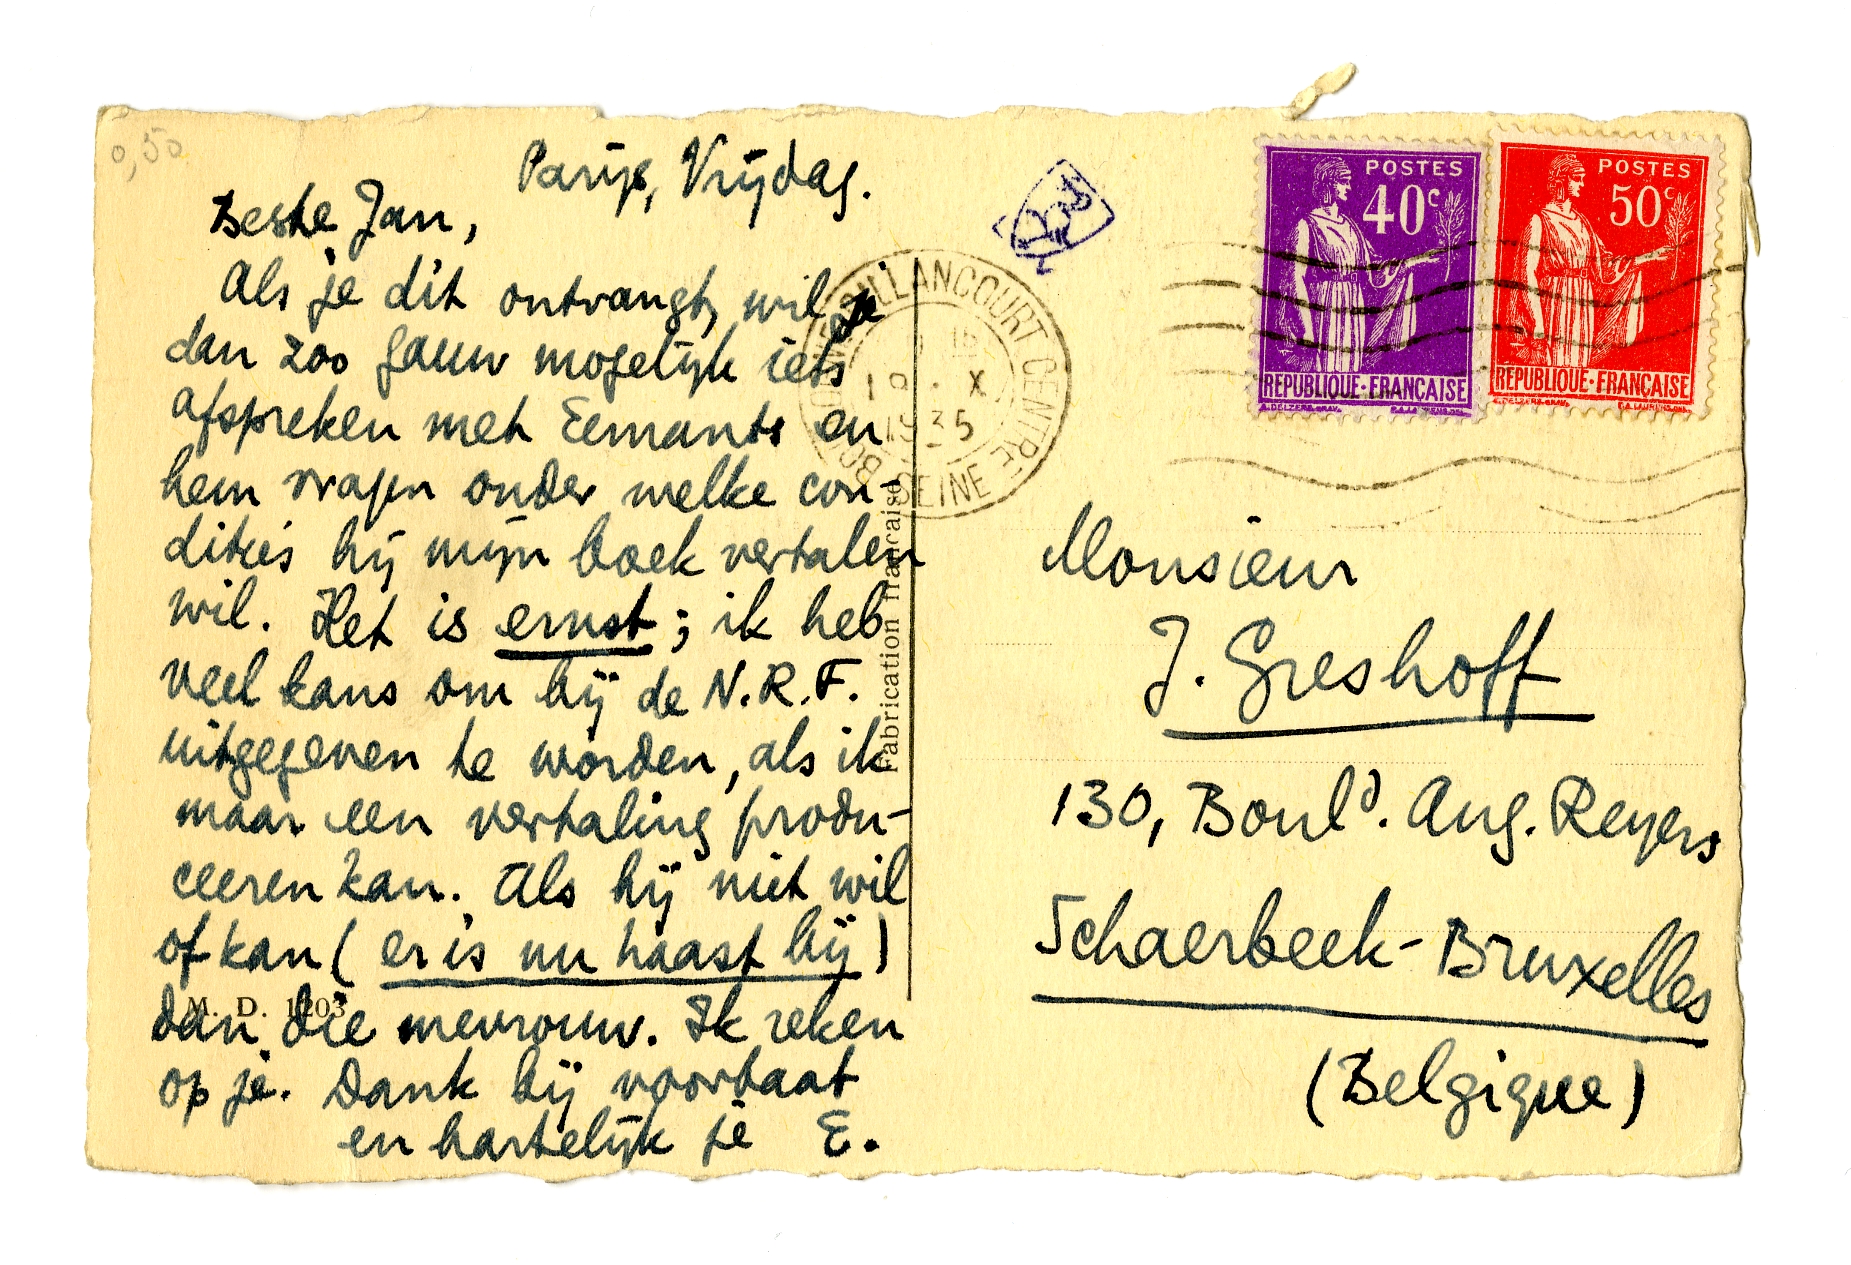 0,50
Parijs, Vrijdag.
Beste Jan,
Als je dit ontvangt, wil je
dan zoo gauw mogelijk iets
afspreken met Eemants en
hem vragen onder welke con-
dities hij mijn boek vertalen
wil. Het is ernst; ik heb
veel kans om bij de N.R.F.
uitgegeven te worden, als ik
maar een vertaling produ-
ceeren kan. Als hij niet wil
of kan (er is nu haast bij)
dan die mevrouw. Ik reken
op je. Dank bij voorbaat
en hartelijk je E.
M. D. 1203
Fabrication française
BILLANCOURT CENTRE
X
1935
SEINE
POSTES
40c
REPUBLIQUE·FRANÇAISE
POSTES
50c
REPUBLIQUE·FRANÇAISE
Monsieur
J. Greshoff
130, Bould. Aug. Reyers
Schaerbeek-Bruxelles
(Belgique)